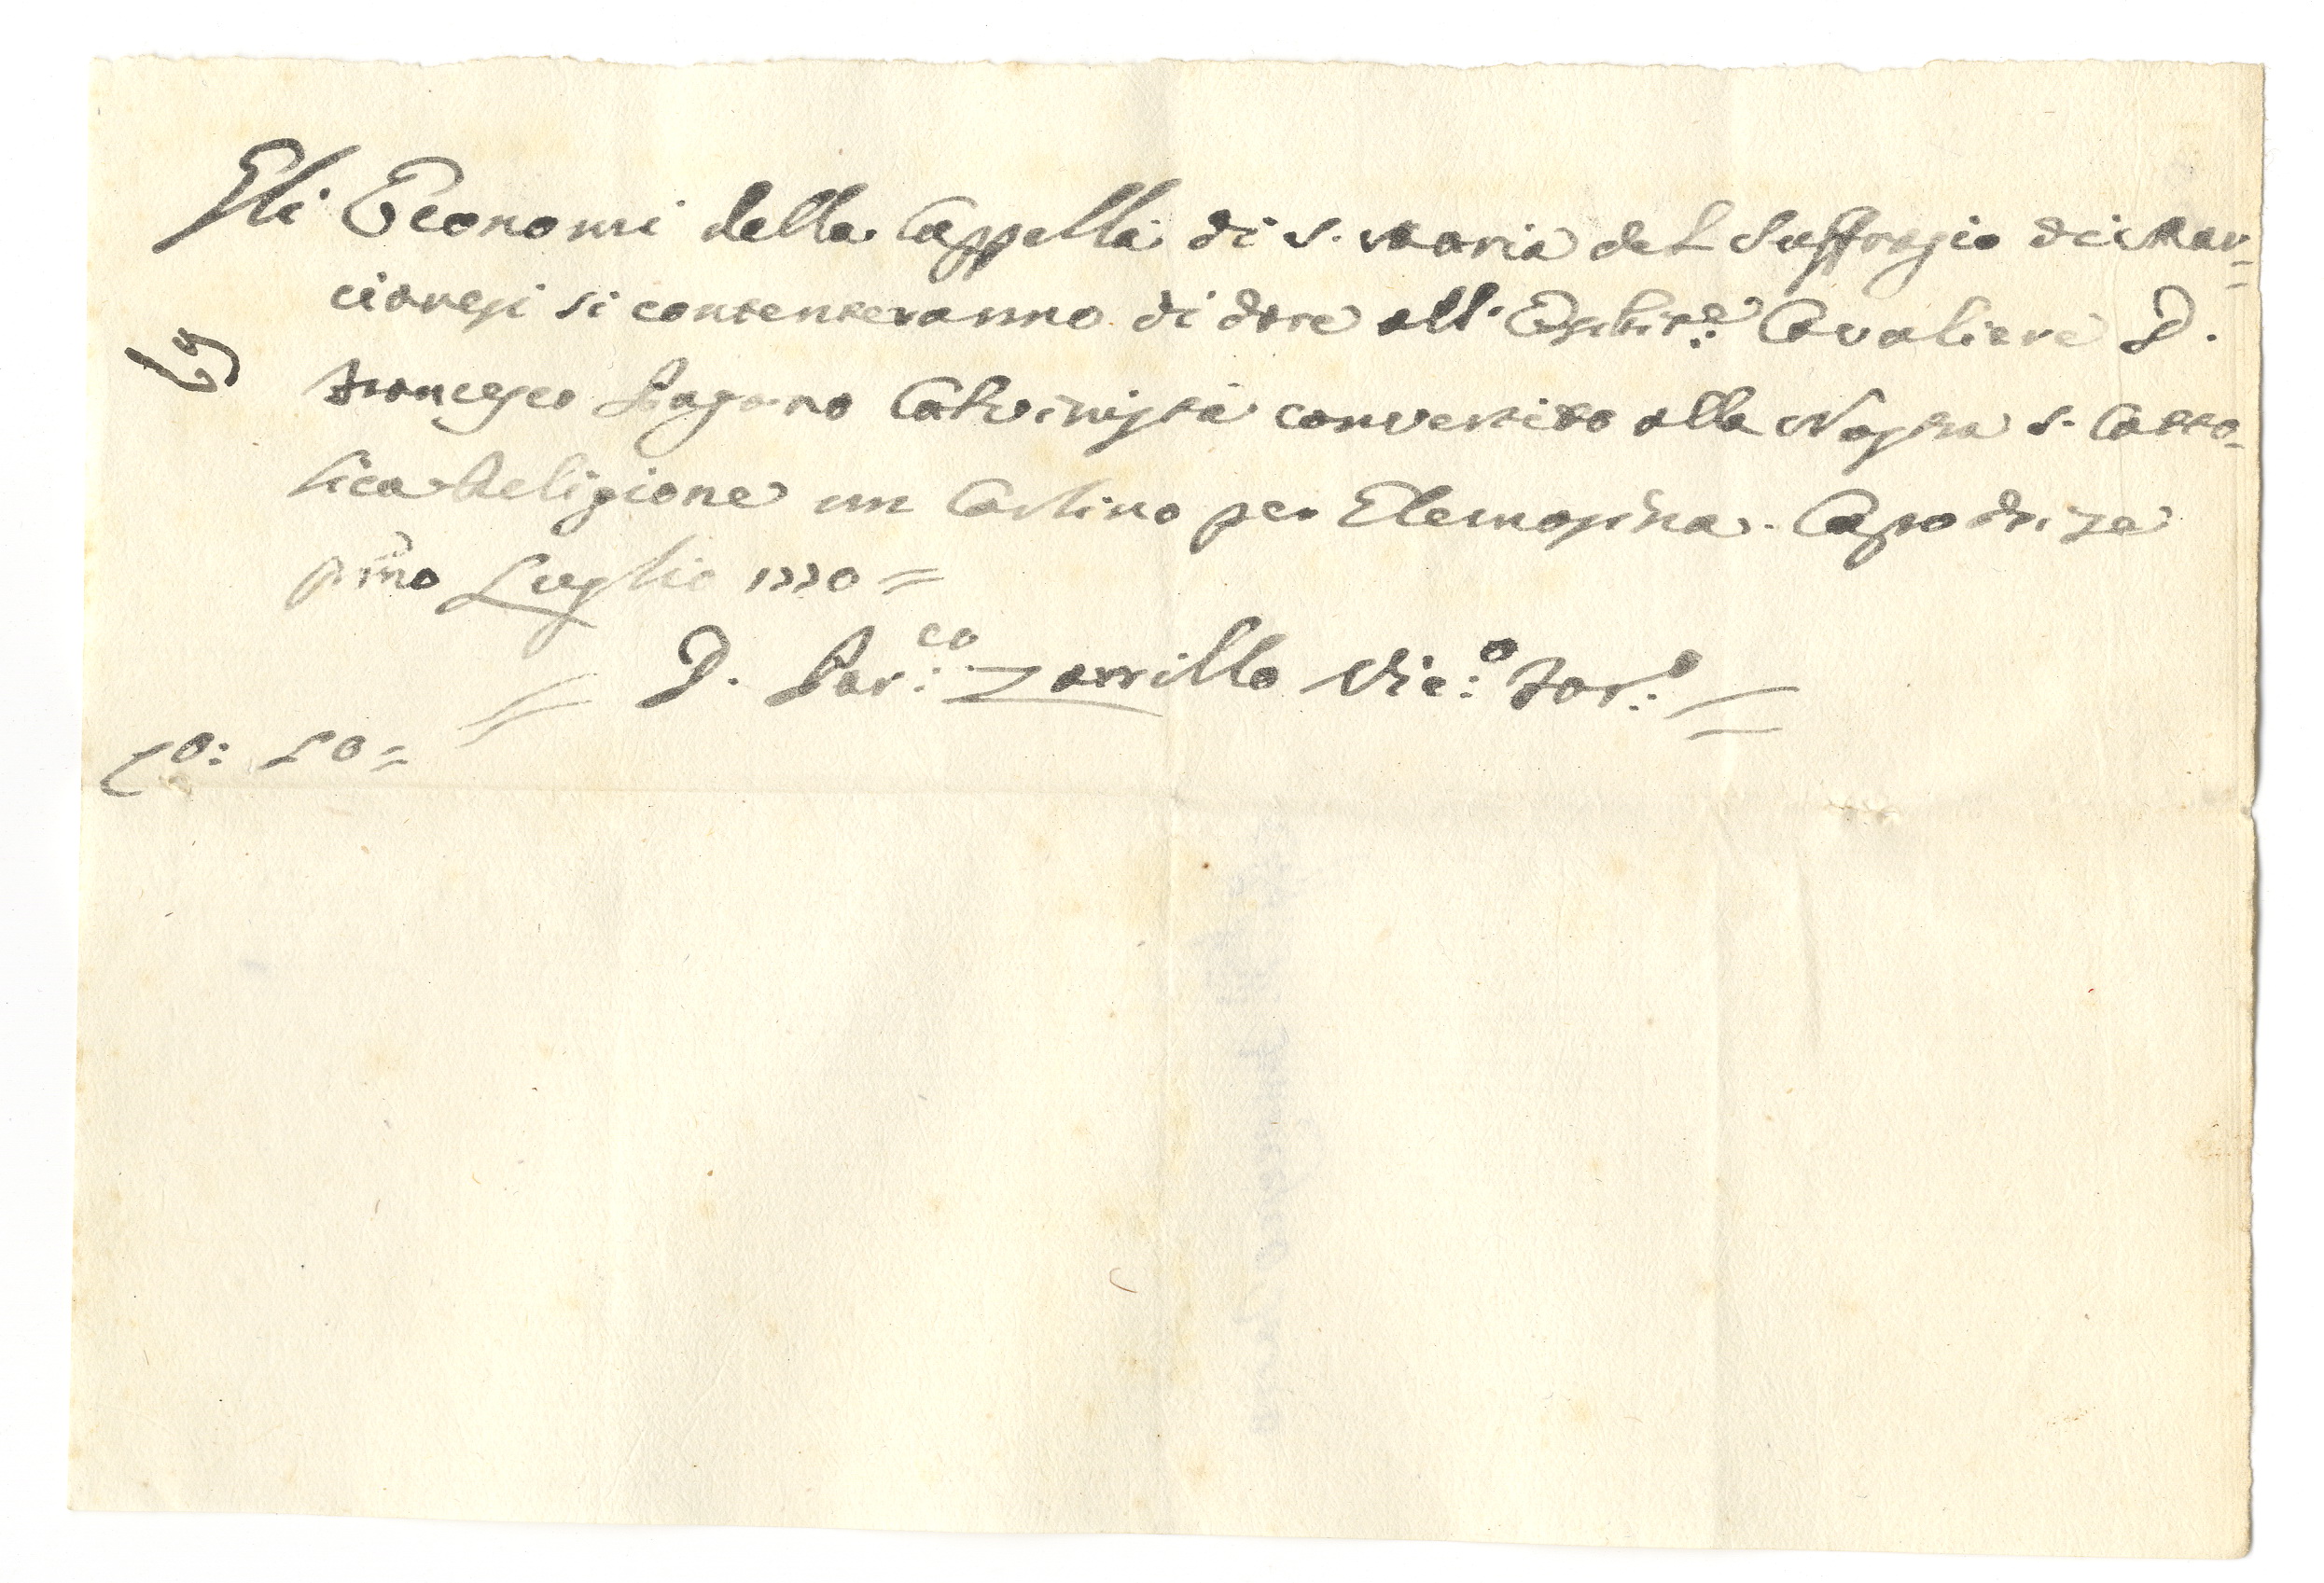 Gli Economi della Cappella di S. Maria del Suffragio di Mar=
cianesi si contenteranno di dare all' Esibit:e Cavaliere D.
Francesco Pagano Calvinista convertito alla Nostra S. Catto=
lica Religione un Carlino per Elemosina. Capodrise
pmo Luglio 1770=
D. Par:co Zarrillo Vic:o For:o=
10=